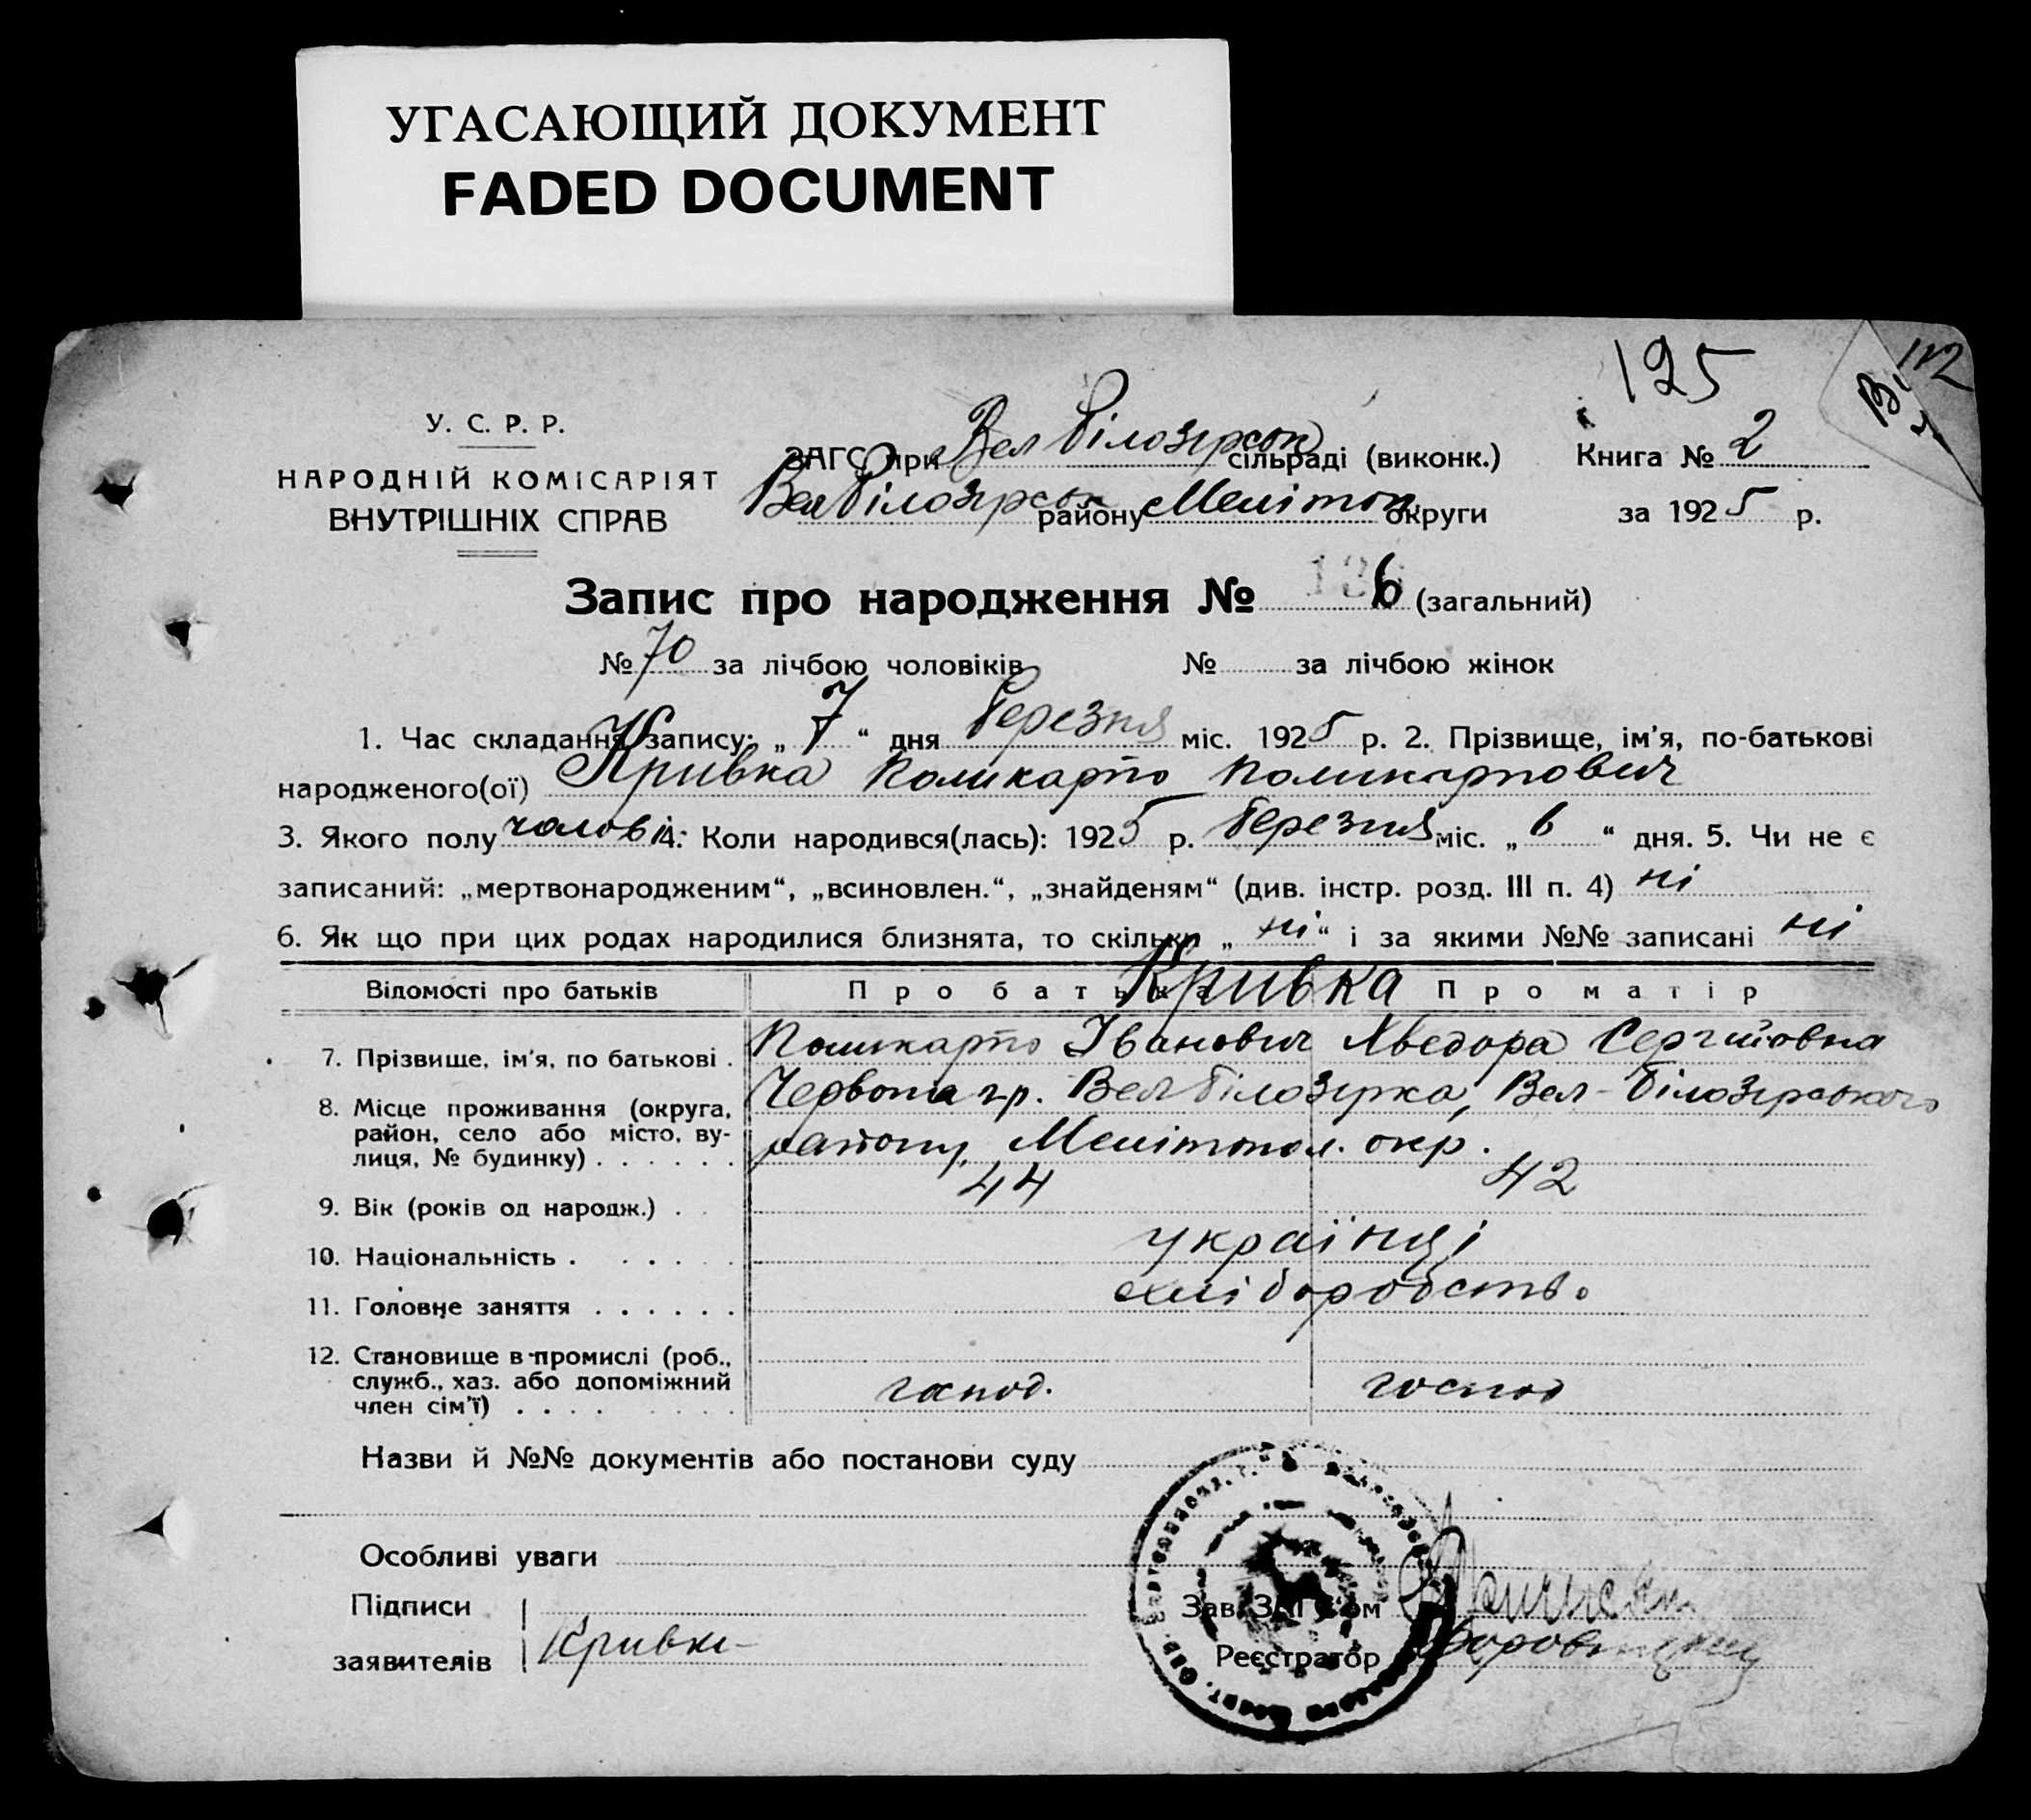 УГАСАЮЩИЙ ДОКУМЕНТ
FADED DOCUMENT
125
112
У. С. Р. Р.
НАРОДНІЙ КОМІСАРІЯТ
ВНУТРІШНІХ СПРАВ
ЗАГС при Вел Білозірськ сільраді (виконк.)
Вел Білозірськ району Мелітоп. округи
Книга № 2
за 1925 р.
Запис про народження № 136 (загальний)
№ 70 за лічбою чоловіків № за лічбою жінок
1. Час складання запису: „ 7 “ дня березня міс. 1925 р. 2. Прізвище, ім'я, по-батькові
народженого(ої) Кривка Поликарпо Поликарпович
3. Якого полу чолові 4. Коли народився(лась): 1925 р. березня міс. „ 6 “ дня. 5. Чи не є
записаний: „мертвонародженим“, „всиновлен.“, „знайденям“ (див. інстр. розд. III п. 4) ні
6. Як що при цих родах народилися близнята, то скільки „ ні “ і за якими №№ записані ні
Відомості про батьків Про батька Про матір
Кривка
7. Прізвище, ім'я, по батькові . Поликарпо Іванович Хведора Сергіиовна
8. Місце проживання (округа, район, село або місто, ву-
лиця, № будинку) . . . . . .
Червона гр. Вел Білозірка, Вел-Білозірського
району, Мелітопол. окр.
9. Вік (років од народж.) . . 44 42
10. Національність . . . . . . українці
11. Головне заняття . . . . . . хліборобство
12. Становище в промислі (роб.,
служб., хаз. або допоміжний
член сім'ї) . . . . господ. господ
Назви й №№ документів або постанови суду
Особливі уваги
Підписи
заявителів Кривка
Зав. ЗАГС'ом
Реєстратор